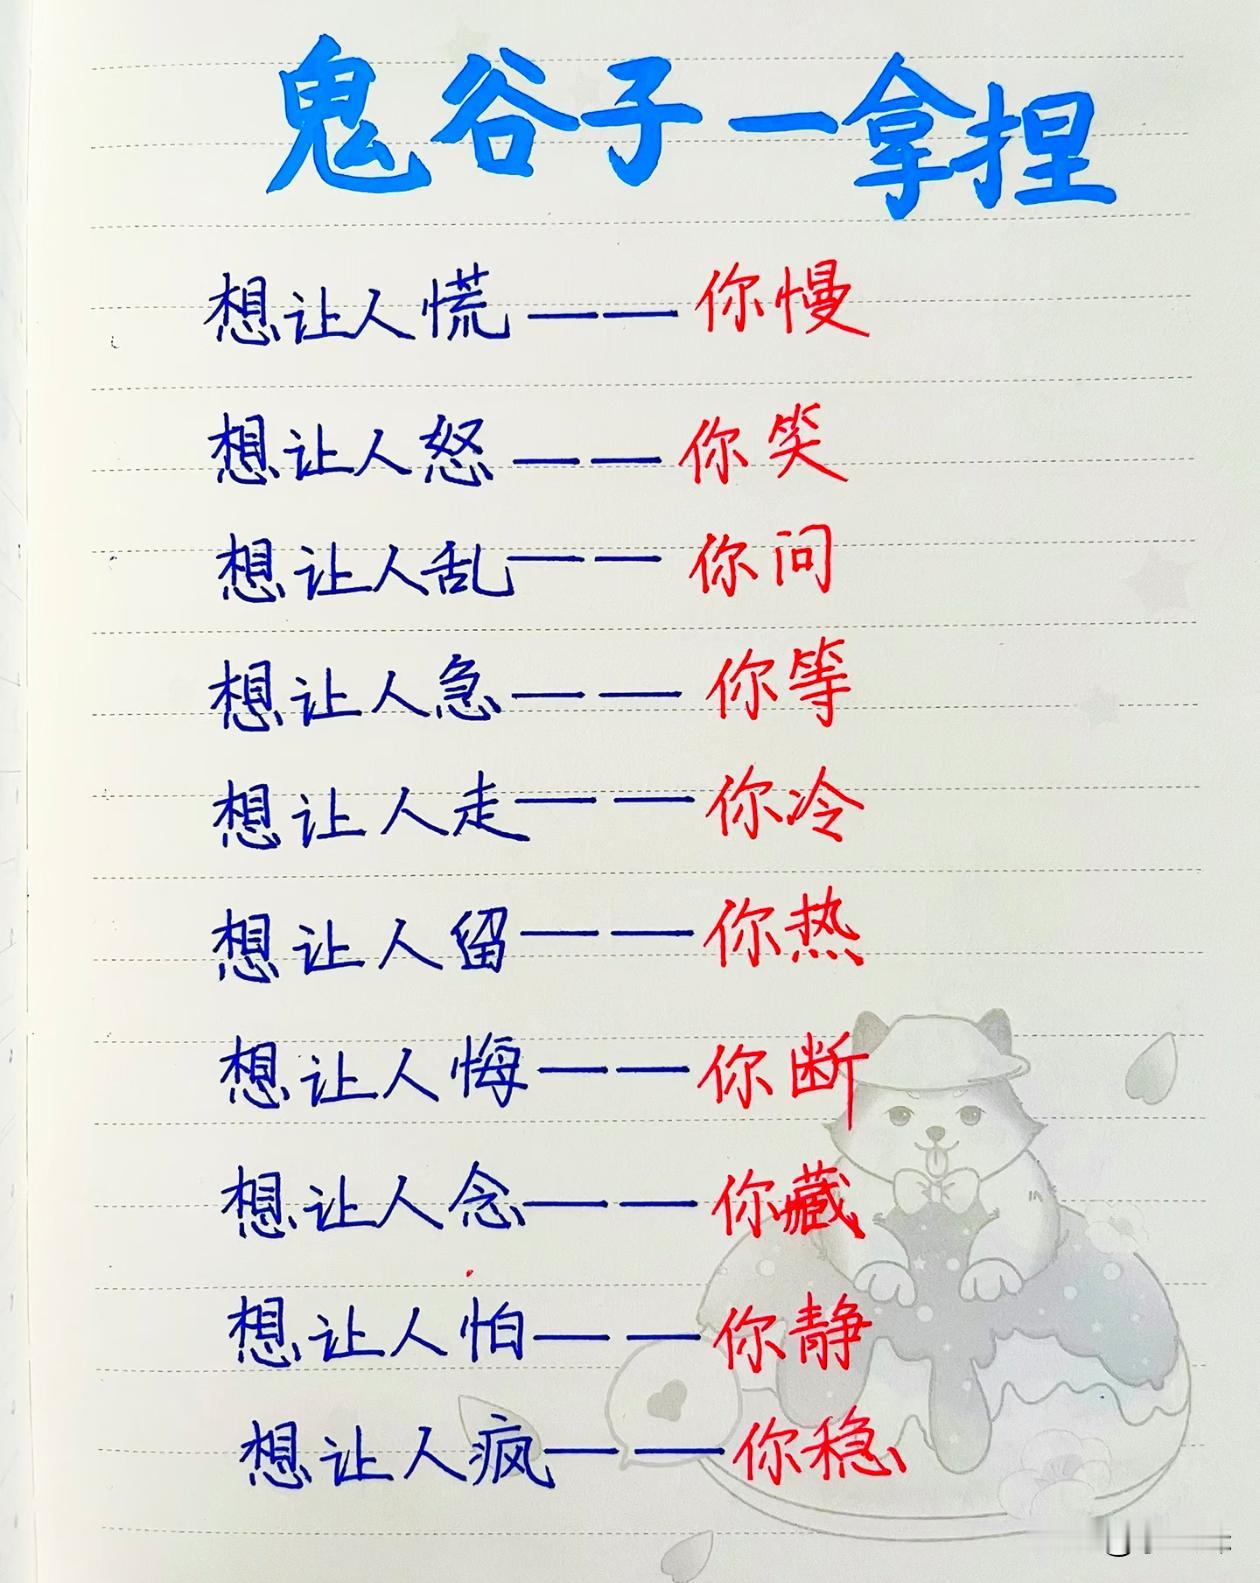 鬼谷子一拿捏
想让人慌——你慢
想让人怒——你笑
想让人乱——你问
想让人急——你等
想让人走——你冷
想让人留——你热
想让人悔——你断
想让人念——你藏
想让人怕——你静
想让人疯——你稳